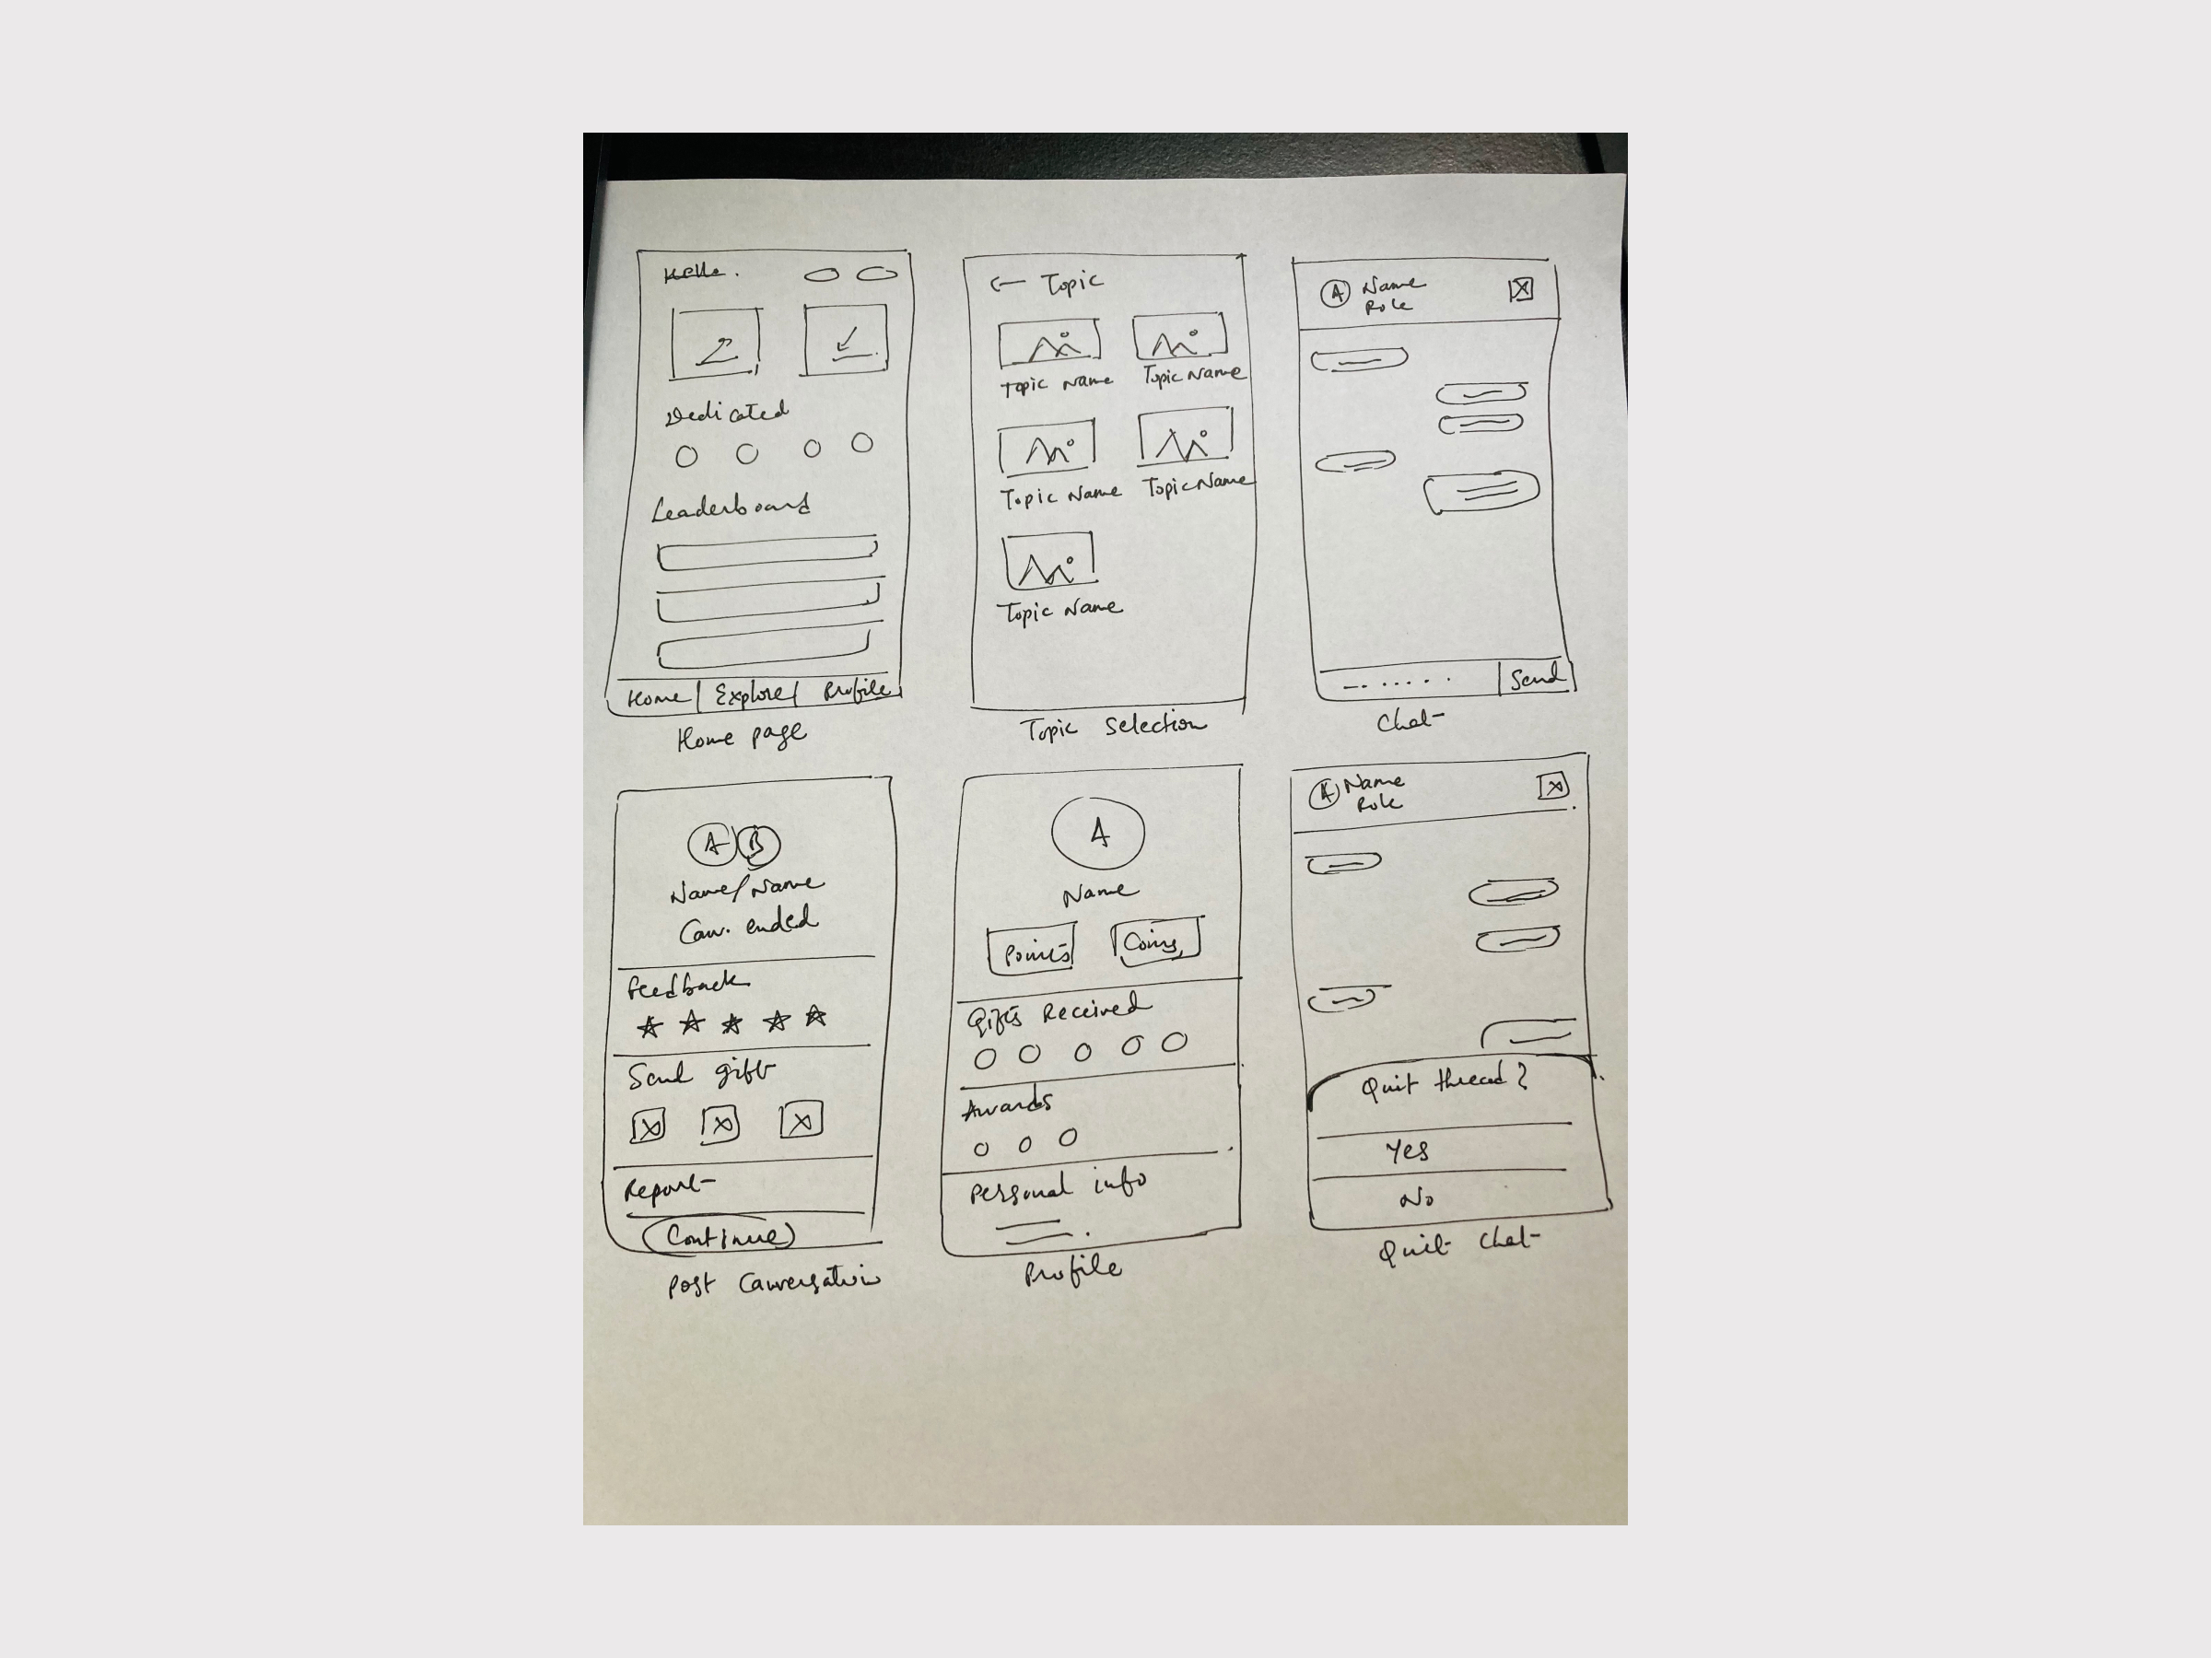 Hello.
Dedicated
Leaderboard
Home | Explore | Profile
Home page
← Topic
Topic Name Topic Name
Topic Name Topic Name
Topic Name
Topic Selection
A Name
Role
Send
Chat
A B
Name/Name
Conv. ended
Feedback
Send gift
Report
Continue
Post Conversation
A
Name
Points Coins
Gifts Received
Awards
Personal info
Profile
A Name
Role
Quit thread?
Yes
No
Quit Chat